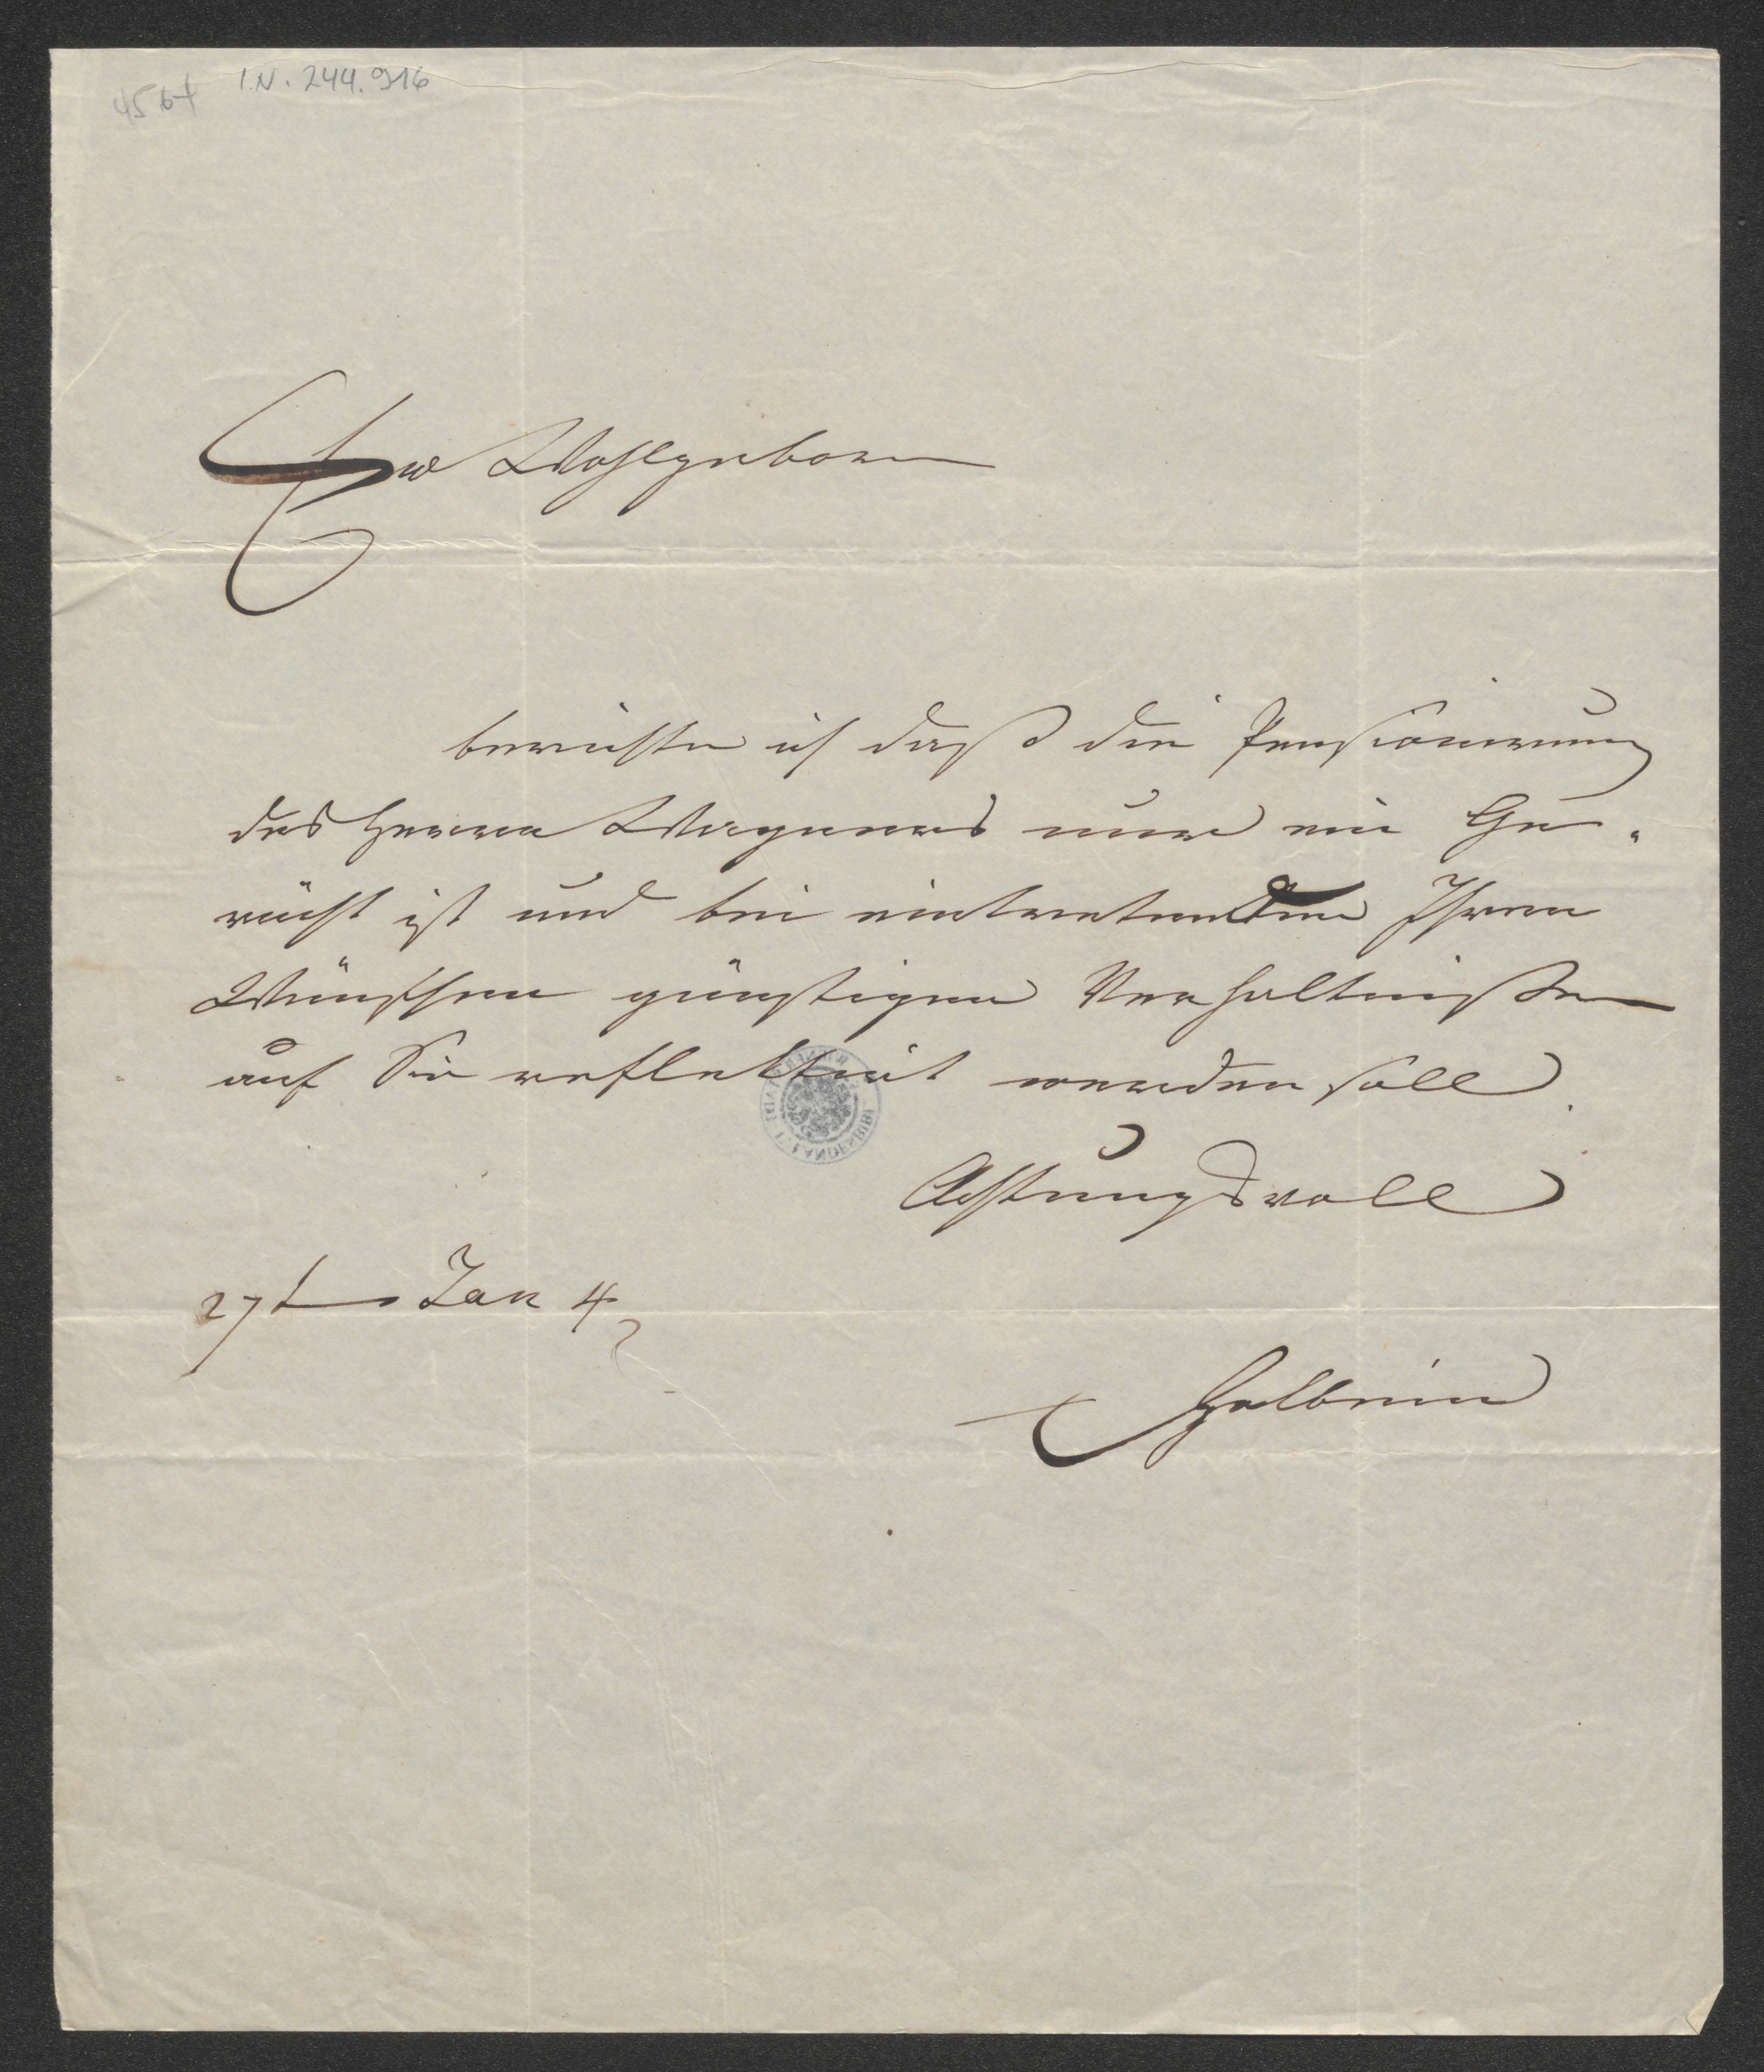 4564 I.N. 244.916
Ew Wohlgeboren
berichte ich daß die Pensionirung
des Herren Wagners nur ein Ge-
rücht ist und bei eintretenden Ihren
Wünschen günstigen Verhaltnißen
auf Sie reflektirt werden soll.
Achtungsvoll
27t Jan 42
Holbein